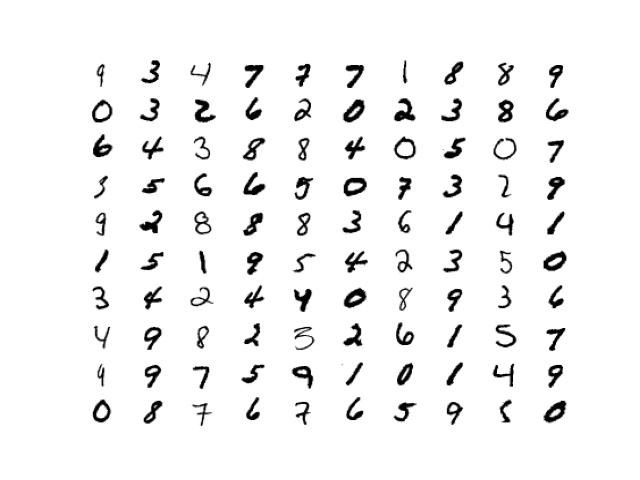 9 3 4 7 7 7 1 8 8 9
0 3 2 6 2 0 2 3 8 6
6 4 3 8 8 4 0 5 0 7
3 5 6 6 5 0 7 3 2 9
9 2 8 8 8 3 6 1 4 1
1 5 1 9 5 4 2 3 5 0
3 4 2 4 4 0 8 9 3 6
4 9 8 2 3 2 6 1 5 7
9 9 7 5 9 1 0 1 4 9
0 8 7 6 7 6 5 9 5 0